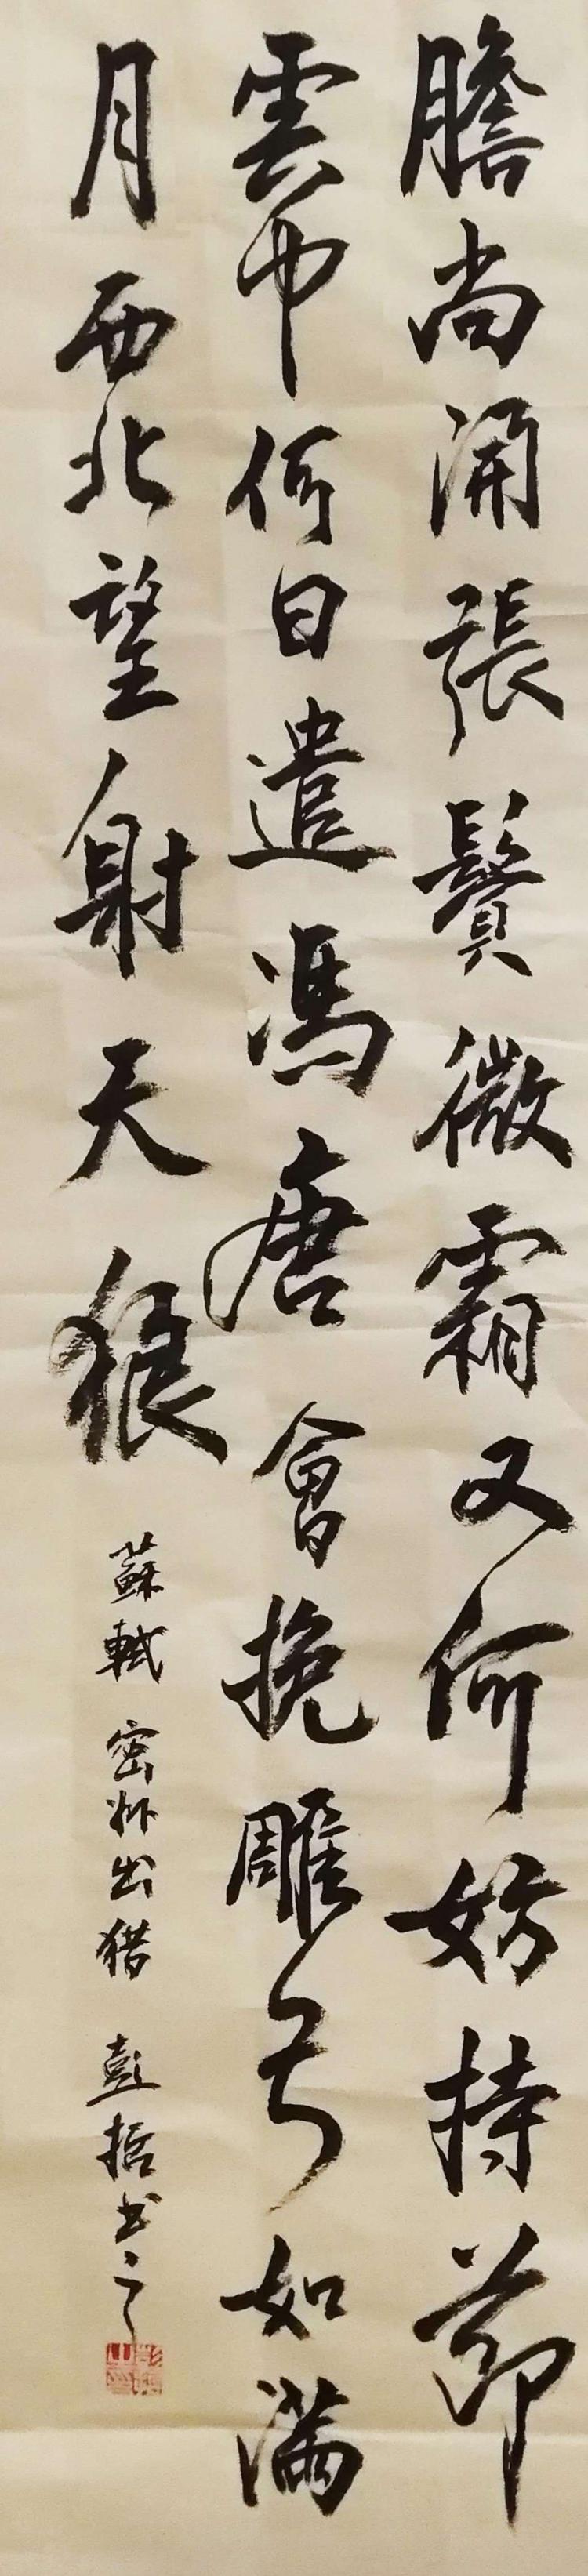 膽尚開張鬢微霜又何妨持節
雲中何日遣馮唐會挽雕弓如滿
月西北望射天狼
蘇軾 密州出猎 彭括书之